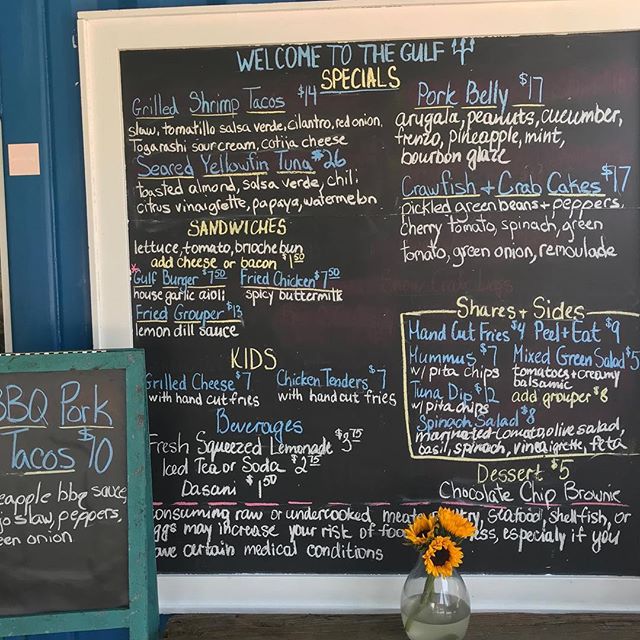 WELCOME TO THE GULF
SPECIALS
Grilled Shrimp Tacos $14
slaw, tomatillo salsa verde, cilantro, red onion,
Togarashi sour cream, cotija cheese
Seared Yellowfin Tuna $26
toasted almond, salsa verde, chili
citrus vinaigrette, papaya, watermelon
SANDWICHES
lettuce, tomato, brioche bun
add cheese or bacon $1.50
*Gulf Burger $7.50 Fried Chicken $7.50
house garlic aioli spicy buttermilk
Fried Grouper $13
lemon dill sauce
KIDS
Grilled Cheese $7 Chicken Tenders $7
with hand cut fries with hand cut fries
Beverages
Fresh Squeezed Lemonade $3.75
Iced Tea or Soda $2.75
Dasani $1.50
Pork Belly $17
arugala, peanuts, cucumber,
frenzo, pineapple, mint,
bourbon glaze
Crawfish + Crab Cakes $17
Pickled green beans + peppers,
cherry tomato, spinach, green
tomato, green onion, remoulade
Snow Crab Legs
Shares + Sides
Hand Cut Fries $4 Peel + Eat $9
Hummus $7 Mixed Green Salad $5
w/ pita chips tomatoes + creamy
balsamic
Tuna Dip $12 add grouper $8
w/ pita chips
Spinach Salad $8
marinated tomato, olive salad,
basil, spinach, vinaigrette, feta
Dessert $5
Chocolate Chip Brownie
consuming raw or undercooked meats, poultry, seafood, shellfish, or
eggs may increase your risk of food illness, especialy if you
have certain medical conditions
BBQ Pork
Tacos $10
pineapple bbq sauce,
slaw, peppers,
green onion